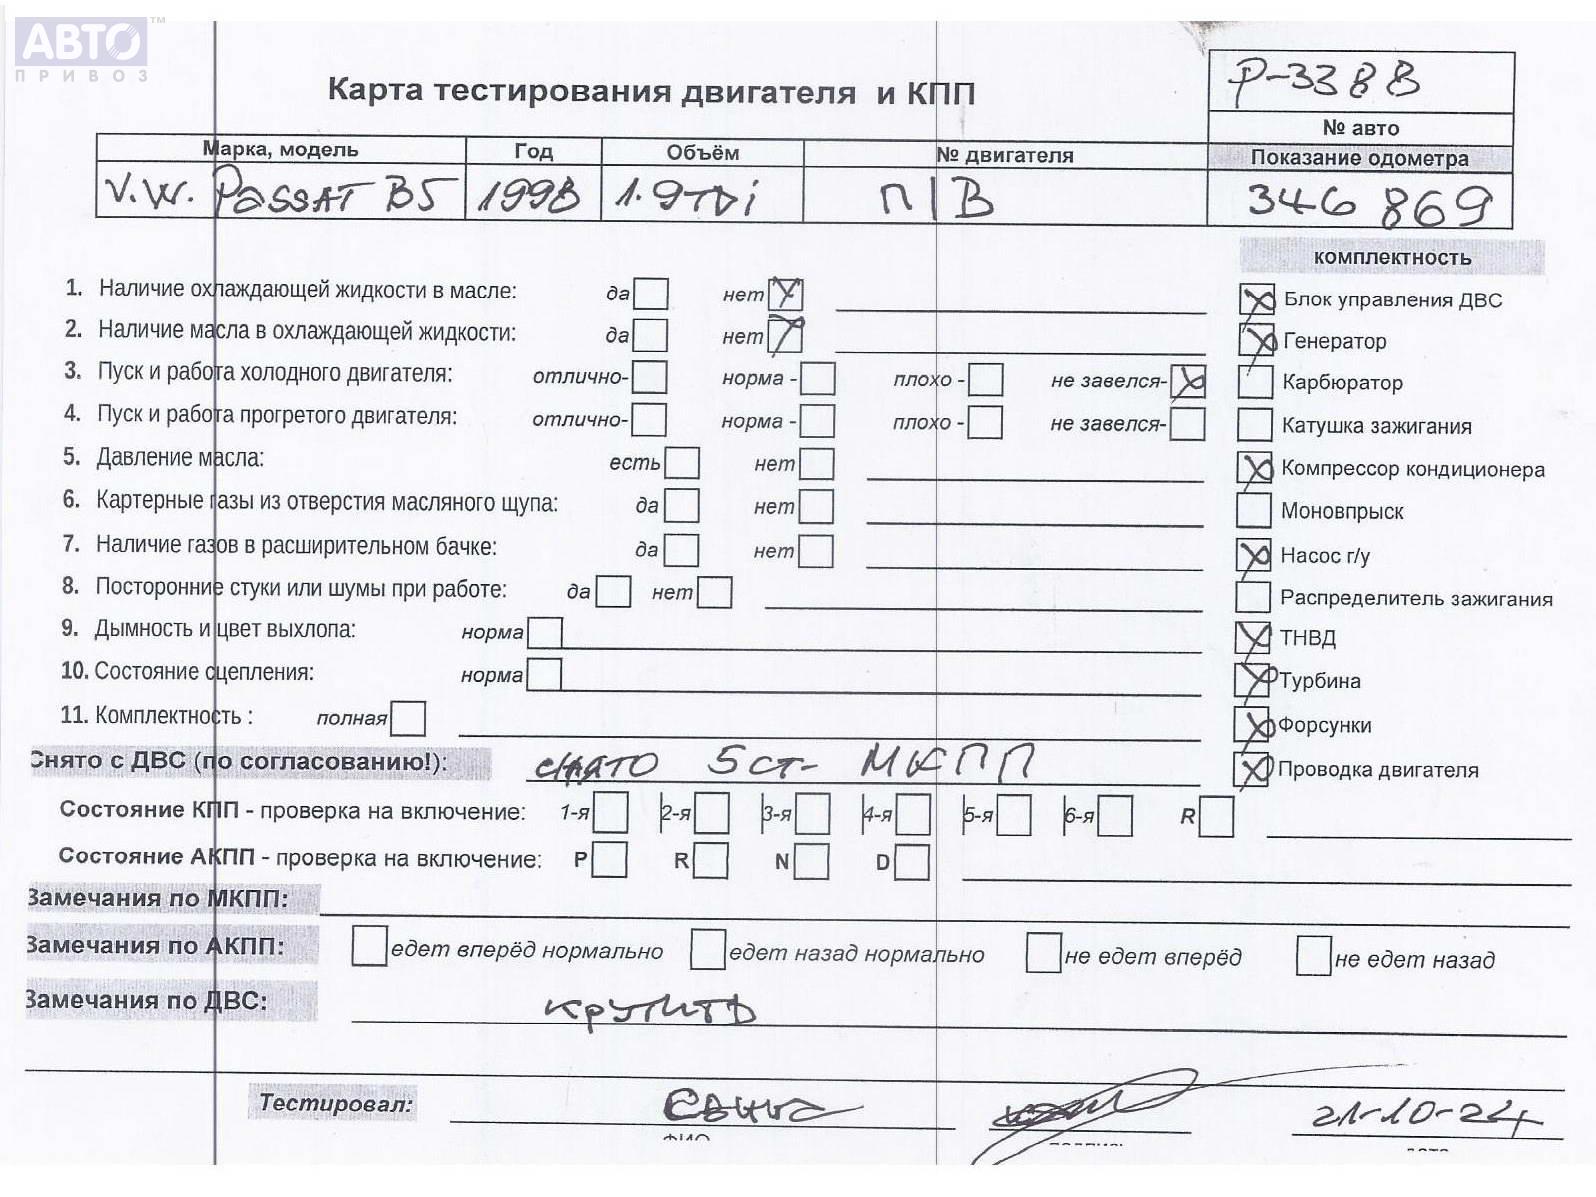 АВТО™
ПРИВОЗ
Карта тестирования двигателя и КПП
P-338B
№ авто
Марка, модель Год Объём № двигателя Показание одометра
V.W. PASSAT B5 1998 1.9TDi П|В 346 869
комплектность
1. Наличие охлаждающей жидкости в масле: да нет
Блок управления ДВС
2. Наличие масла в охлаждающей жидкости: да нет
Генератор
3. Пуск и работа холодного двигателя: отлично- норма - плохо - не завелся-
Карбюратор
4. Пуск и работа прогретого двигателя: отлично- норма - плохо - не завелся-
Катушка зажигания
5. Давление масла: есть нет
Компрессор кондиционера
6. Картерные газы из отверстия масляного щупа: да нет
Моновпрыск
7. Наличие газов в расширительном бачке: да нет
Насос г/у
8. Посторонние стуки или шумы при работе: да нет
Распределитель зажигания
9. Дымность и цвет выхлопа: норма
ТНВД
10. Состояние сцепления: норма
Турбина
11. Комплектность : полная
Форсунки
Снято с ДВС (по согласованию!): снято 5ст- МКПП
Проводка двигателя
Состояние КПП - проверка на включение: 1-я 2-я 3-я 4-я 5-я 6-я R
Состояние АКПП - проверка на включение: P R N D
Замечания по МКПП:
Замечания по АКПП: едет вперёд нормально едет назад нормально не едет вперёд не едет назад
Замечания по ДВС: крутить
Тестировал: 21-10-24
ФИО подпись дата